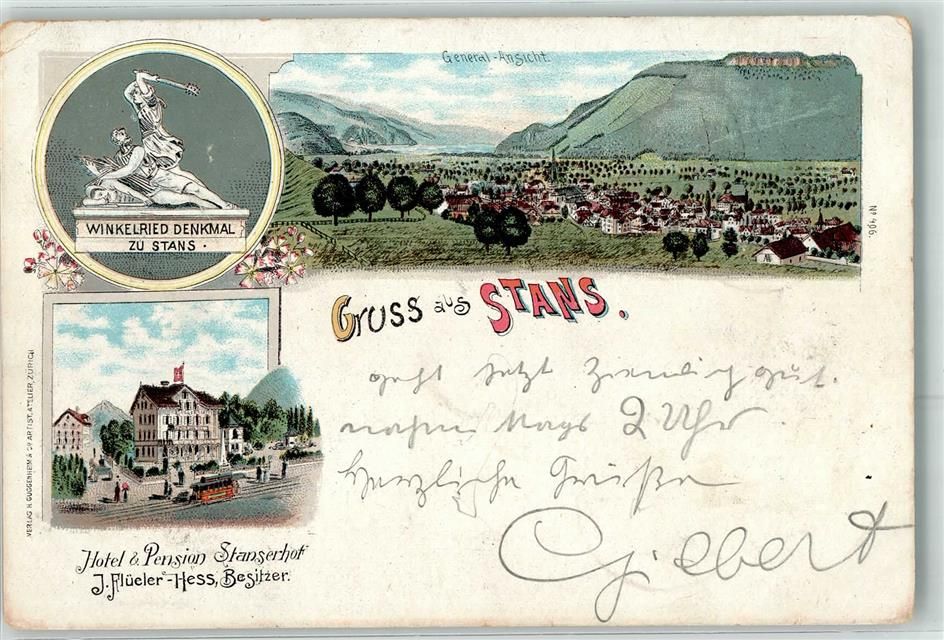 General-Ansicht.
WINKELRIED DENKMAL
ZU STANS.
Nº 496.
Gruss aus STANS.
VERLAG H. GUGGENHEIM & Co ARTIST. ATELIER, ZÜRICH
Hotel & Pension Stanserhof
J. Flüeler-Hess, Besitzer.
geht jetzt ziemlich gut.
nachmittags 2 Uhr
Herzliche Grüße
Gisbert